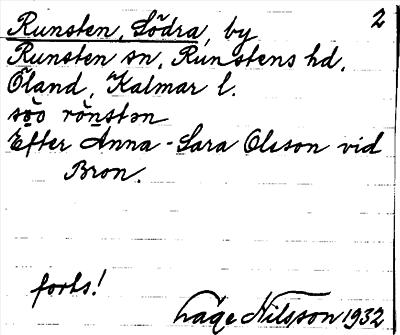 Runsten, Södra, by 2
Runsten sn, Runstens hd.
Öland, Kalmar l.
söo rönstən
Efter Anna-Sara Olsson vid
Bron.
forts!
Låge Nilsson 1932